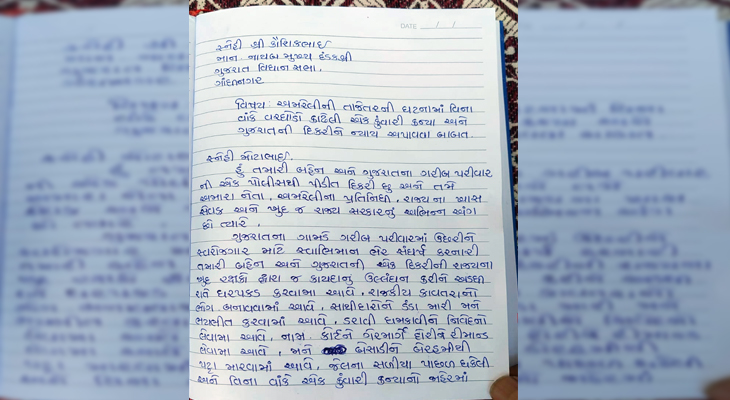 DATE / /
સ્નેહી શ્રી કૌશિકભાઈ
માન નાયબ મુખ્ય દંડકશ્રી
ગુજરાત વિધાન સભા.
ગાંધીનગર
વિષય: અમરેલીની તાજેતરની ઘટનામાં વિના
વાંકે વરઘોડો કાઢેલી એક કુંવારી કન્યા અને
ગુજરાતની દિકરીને ન્યાય અપાવવા બાબત.
સ્નેહી મોટાભાઈ.
હું તમારી બહેન અને ગુજરાતના ગરીબ પરીવાર
ની એક પોલીસથી પીડીત દિકરી છુ અને તમે
અમારા નેતા, અમરેલીના પ્રતિનિધી, રાજ્ય ના ખાસ
સેવક અને ખુદ જ રાજ્ય સરકારનું અભિન્ન અંગ
છો ત્યારે.
ગુજરાતના ગામડે ગરીબ પરીવારમાં ઉછરીને
સ્વરોજગાર માટે સ્વાભિમાન ભેર સંઘર્ષ કરનારી
તમારી બહેન અને ગુજરાતની એક દિકરીની રાજ્યના
ખુદ રક્ષકો દ્વારા જ કાયદાનુ ઉલ્લંઘન કરીને અડધી
રાતે ધરપકડ કરવામા આવે, રાજકીય કાવતરાનો
ભોગ બનાવવામાં આવે, સાથીદારોને દંડા મારી મને
ભયભીત કરવામાં આવે, ડરાવી ધમકાવીને નિવેદનો
લેવામા આવે, નામ. કોર્ટને ગેરમાર્ગે દોરીને રીમાન્ડ
લેવામા આવે, મને બેસાડીને બેરહમીથી
પટ્ટા મારવામાં આવે, જેલના સળીયા પાછળ ધકેલી
અને વિના વાંકે એક કુંવારી કન્યાનો જાહેરમાં